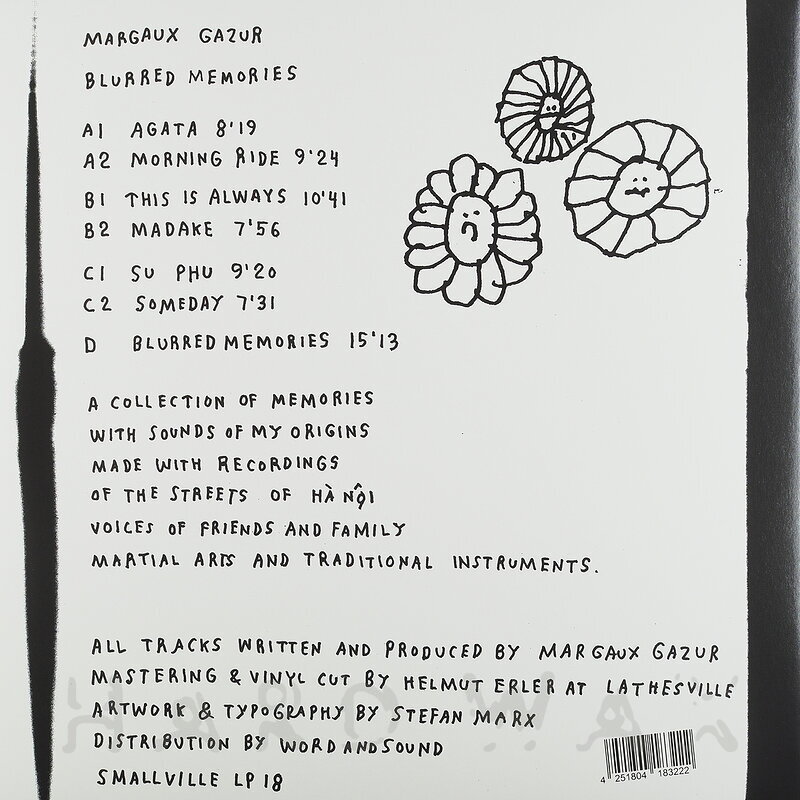 MARGAUX GAZUR
BLURRED MEMORIES
A1 AGATA 8'19
A2 MORNING RIDE 9'24
B1 THIS IS ALWAYS 10'41
B2 MADAKE 7'56
C1 SU PHU 9'20
C2 SOMEDAY 7'31
D BLURRED MEMORIES 15'13
A COLLECTION OF MEMORIES
WITH SOUNDS OF MY ORIGINS
MADE WITH RECORDINGS
OF THE STREETS OF HÀ NỘI
VOICES OF FRIENDS AND FAMILY
MARTIAL ARTS AND TRADITIONAL INSTRUMENTS.
ALL TRACKS WRITTEN AND PRODUCED BY MARGAUX GAZUR
MASTERING & VINYL CUT BY HELMUT ERLER AT LATHESVILLE
ARTWORK & TYPOGRAPHY BY STEFAN MARX
DISTRIBUTION BY WORDANDSOUND
SMALLVILLE LP 18
4 251804 183222